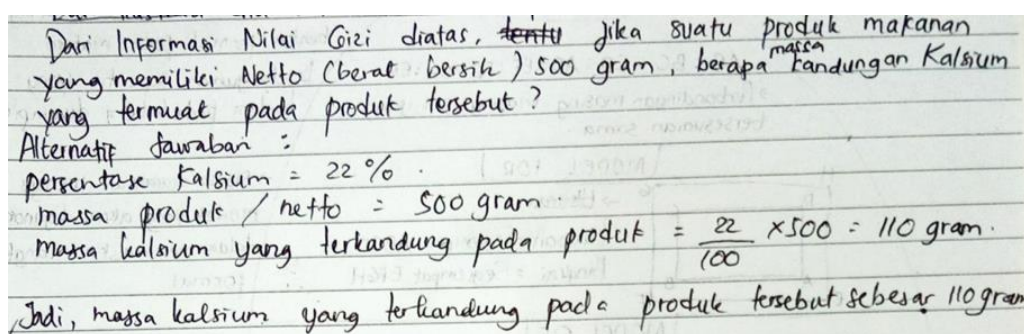 Dari Informasi Nilai Gizi diatas, tentu jika suatu produk makanan
yang memiliki Netto (berat bersih) 500 gram, berapa massa kandungan Kalsium
yang termuat pada produk tersebut?
Alternatif Jawaban :
persentase Kalsium = 22 % .
massa produk / netto = 500 gram
massa kalsium yang terkandung pada produk = 22/100 x 500 = 110 gram.
Jadi, massa kalsium yang terkandung pada produk tersebut sebesar 110 gram